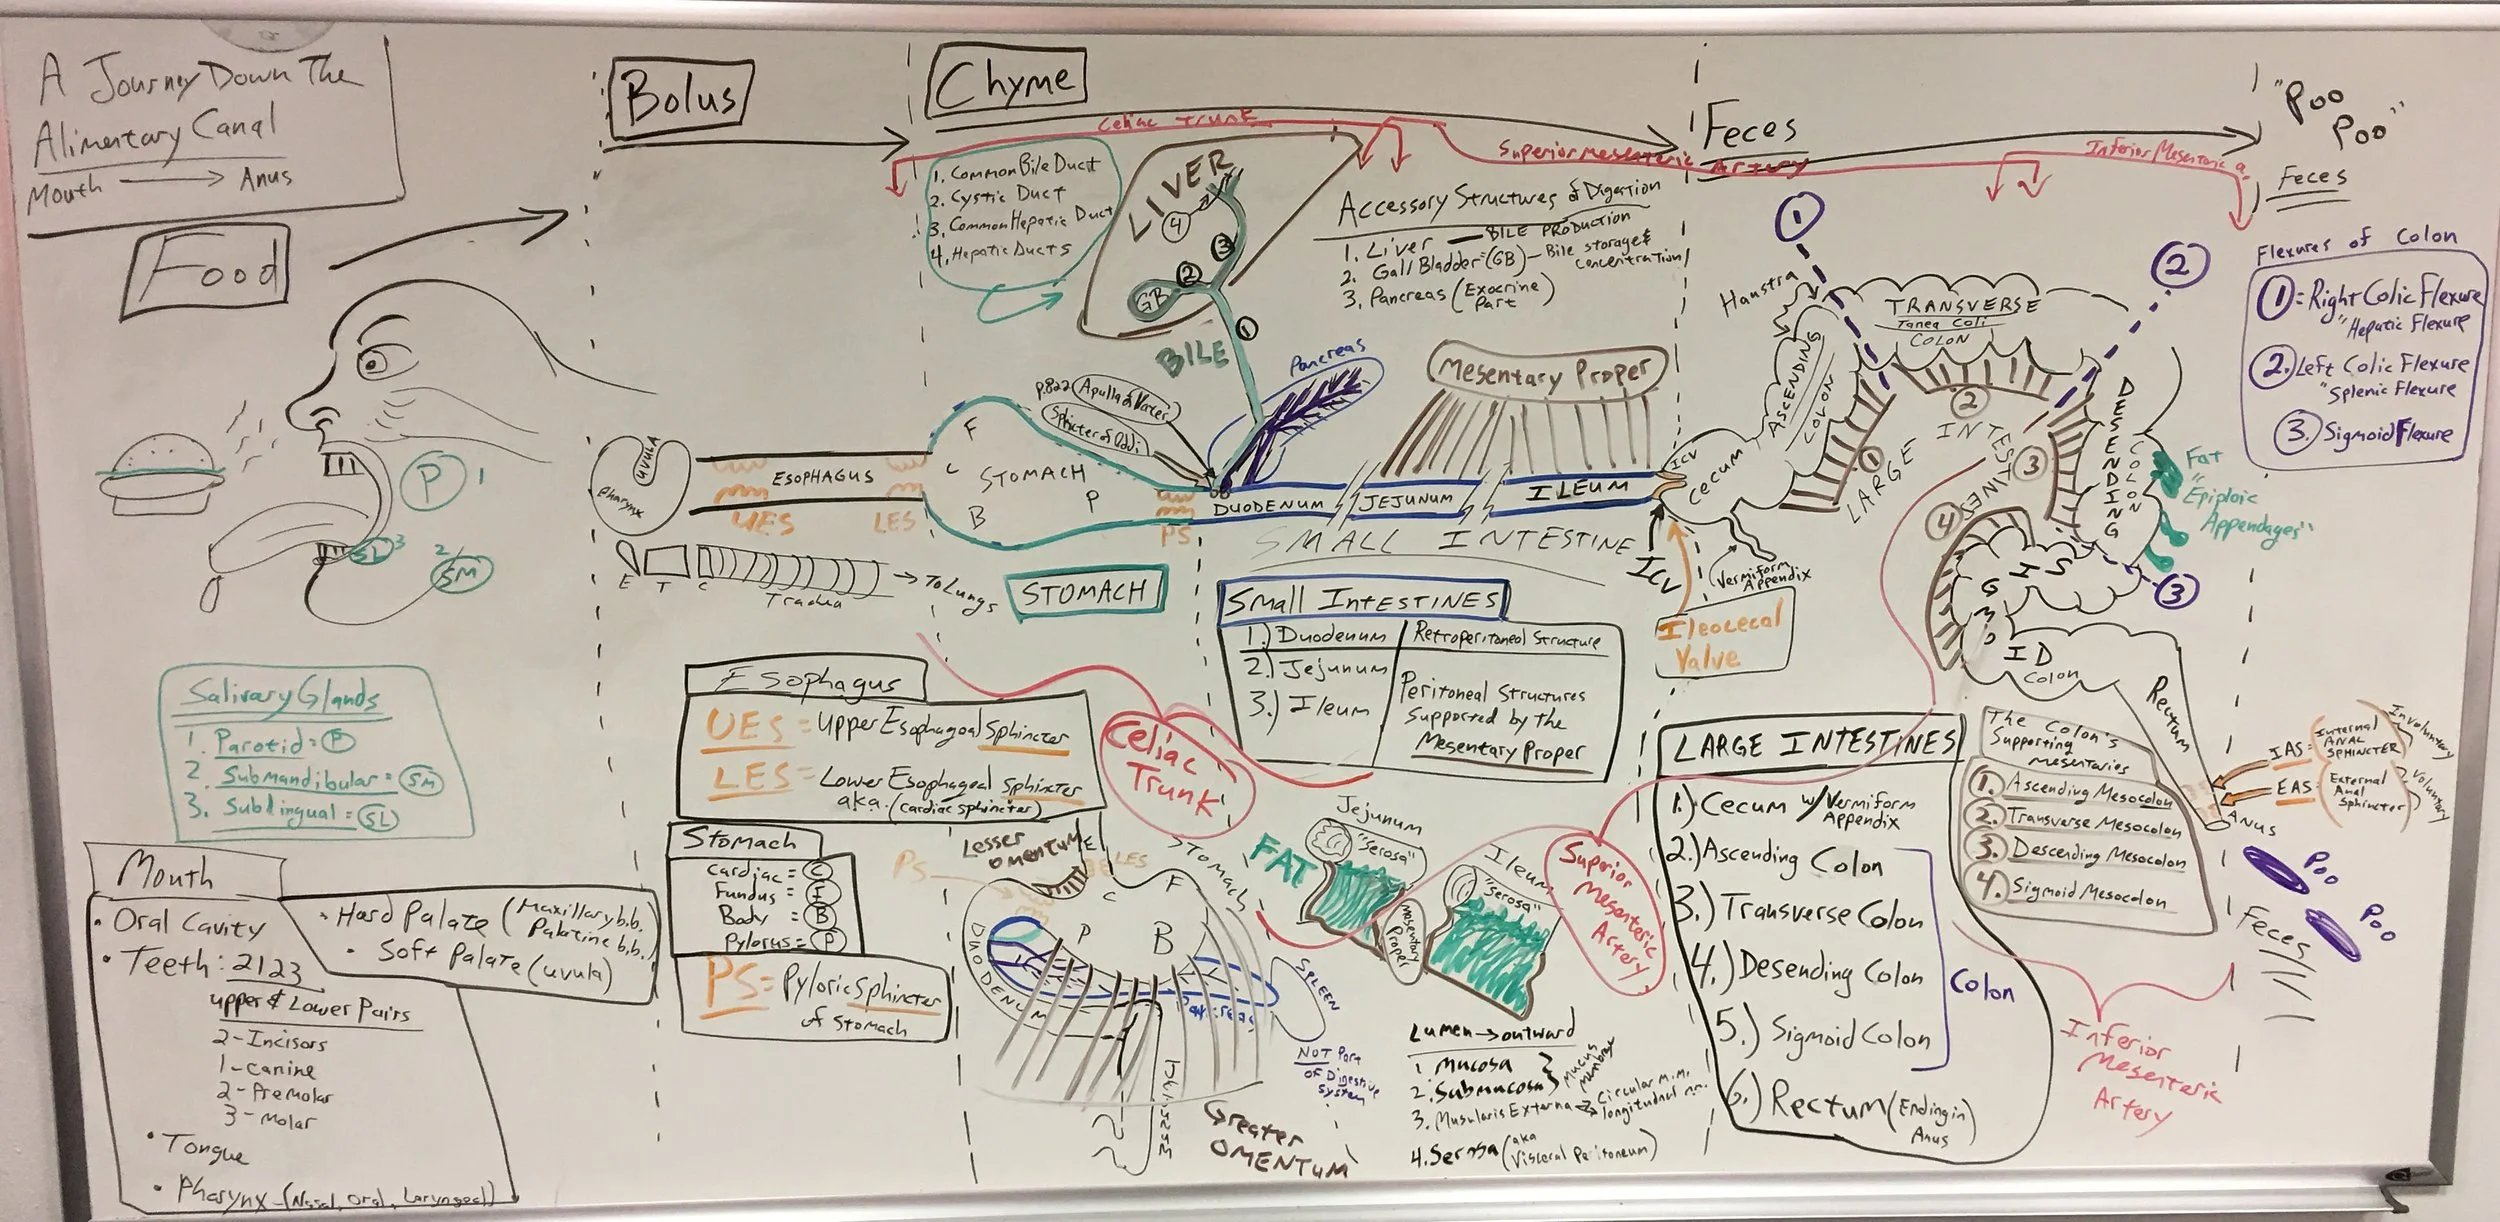 A Journey Down The
Alimentary Canal
Mouth → Anus
Food
Bolus
Chyme
Feces
"Poo
Poo"
Feces
Celiac Trunk
Superior Mesenteric
Artery
Inferior Mesenteric a.
1. Common Bile Duct
2. Cystic Duct
3. Common Hepatic Duct
4. Hepatic Ducts
LIVER
4
3
2
GB
1
BILE
Accessory Structures of Digestion
1. Liver — BILE PRODUCTION
2. Gall Bladder=(GB) – Bile storage &
concentration
3. Pancreas (Exocrine
Part)
Flexures of Colon
1 = Right Colic Flexure
"Hepatic Flexure
2. Left Colic Flexure
"Splenic Flexure
3. Sigmoid Flexure
P 1
SL 3
2/ SM
uvula
Pharynx
ESOPHAGUS
UES
LES
F
C
STOMACH
B
P
PS
p.822 Apulla of Vater
Sphicter of Oddi
Pancreas
Mesentary Proper
DUODENUM
JEJUNUM
ILEUM
SMALL INTESTINE
ICV
ICV
Cecum
Vermiform
Appendix
Ileocecal
Valve
Haustra
1
2
ASCENDING
COLON
TRANSVERSE
Tanea Coli
COLON
DESENDING
COLON
LARGE
INTESTINE
1
2
3
4
SIGMOID
Colon
3
Fat
"Epiploic
Appendages"
Rectum
IAS= (Internal
ANAL
SPHINCTER) Involuntary
EAS= (External
Anal
Sphincter) Voluntary
ANUS
E T C
Trachea
→ To Lungs
STOMACH
Small INTESTINES
1.) Duodenum Retroperitoneal Structure
2.) Jejunum
3.) Ileum
Peritoneal Structures
Supported by the
Mesentary Proper
Salivary Glands
1. Parotid = P
2. Submandibular = SM
3. Sublingual = SL
Esophagus
UES = Upper Esophageal Sphincter
LES = Lower Esophageal Sphincter
aka. (cardiac sphincter)
Celiac
Trunk
Stomach
Cardiac = C
Fundus = F
Body = B
Pylorus = P
PS = Pyloric Sphincter
of Stomach
Mouth
• Oral Cavity
• Teeth: 2123
upper & Lower Pairs
2-Incisors
1-canine
2-Premolar
3-molar
• Tongue
• Pharynx-(Nasal, Oral, Laryngeal)
• Hard Palate (Maxillary b.b.
Palatine b.b.)
• Soft Palate (uvula)
Lesser
OMENTUM
E
LES
PS
C
F
P
B
STOMACH
DUODENUM
Pancreas
SPLEEN
NOT Part
of Digestive
System
Greater
OMENTUM
Jejunum
"Serosa"
FAT
Mesentary
Proper
Ileum
"Serosa"
Superior
Mesenteric
Artery
Lumen → outward
1 Mucosa
2. Submucosa
Mucus
Membrane
3. Muscularis Externa
Circular m.m.
longitudnal m.m.
4. Serosa (aka
Visceral Peritoneum)
LARGE INTESTINES
1.) Cecum w/ Vermiform
Appendix
2.) Ascending Colon
3.) Transverse Colon
4.) Desending Colon
5.) Sigmoid Colon
Colon
6.) Rectum (Ending in
Anus)
The Colon's
Supporting
Mesentaries
1. Ascending Mesocolon
2. Transverse Mesocolon
3. Descending Mesocolon
4. Sigmoid Mesocolon
Inferior
Mesenteric
Artery
Poo
Poo
Feces